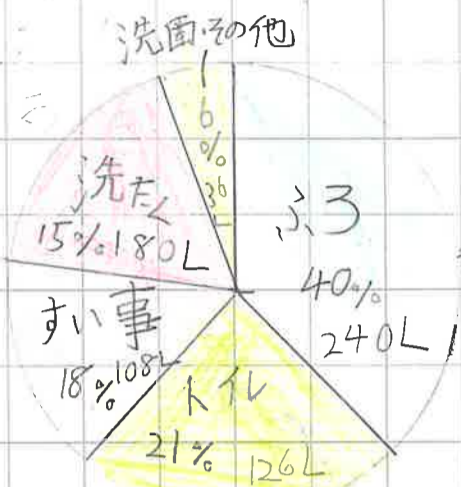 洗面・その他
6%
36L
ふろ
40%
240L
洗たく
15% 180L
すい事
18% 108L
トイレ
21% 126L